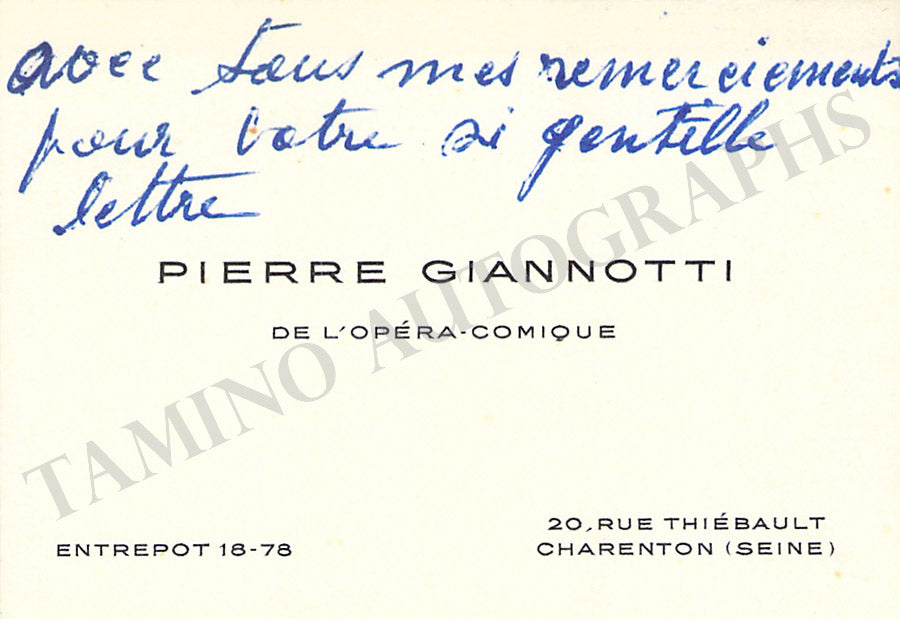 avec tous mes remerciements
pour votre si gentille
lettre
PIERRE GIANNOTTI
DE L'OPÉRA-COMIQUE
TAMINO AUTOGRAPHS
ENTREPOT 18-78
20, RUE THIÉBAULT
CHARENTON (SEINE)